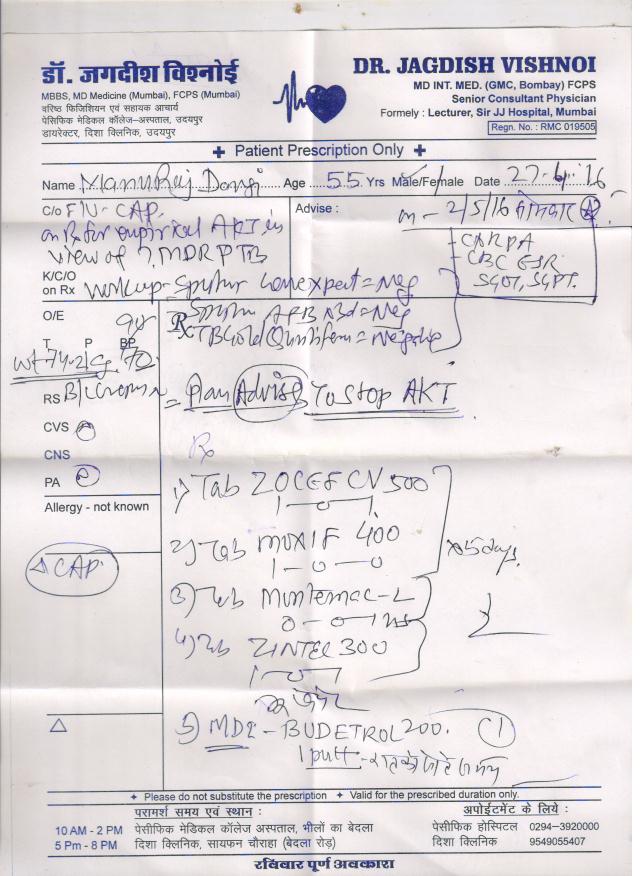 डॉ. जगदीश विश्नोई
MBBS, MD Medicine (Mumbai), FCPS (Mumbai)
वरिष्ठ फिजिशियन एवं सहायक आचार्य
पेसिफिक मेडिकल कॉलेज-अस्पताल, उदयपुर
डायरेक्टर, दिशा क्लिनिक, उदयपुर
DR. JAGDISH VISHNOI
MD INT. MED. (GMC, Bombay) FCPS
Senior Consultant Physician
Formely : Lecturer, Sir JJ Hospital, Mumbai
Regn. No. : RMC 019505
+ Patient Prescription Only +
Name Age 55 Yrs Male/Female Date 27.4.16
C/o F/U- CAP.
on Rx for empirical AKT in
view of ? MDR PTB
K/C/O
on Rx Workup- Sputum Genexpert = Neg
Advise : on - 2/5/16 सोमवार
- CXR PA
- CBC ESR
SGOT, SGPT.
O/E
Rx Sputum AFB = Neg
TB Gold Quantiferon = Negative
T P BP
70
RS
= Plan Advise To Stop AKT
CVS
CNS
PA
Allergy - not known
Δ CAP
Rx
1) Tab ZOCEF CV 500
1 - 0 - 1
2) Tab MOXIF 400
1 - 0 - 0
x5 days.
3) Tab Montemac-L
0 - 0 - 1 HS
4) Tab ZINTEC 300
1 - 0 - 1
5) MDI - BUDETROL 200.
1 puff - रात को सोते समय
Δ
+ Please do not substitute the prescription + Valid for the prescribed duration only.
परामर्श समय एवं स्थान :
10 AM - 2 PM पेसीफिक मेडिकल कॉलेज अस्पताल, भीलों का बेदला
5 Pm - 8 PM दिशा क्लिनिक, सायफन चौराहा (बेदला रोड़)
अपोईटमेंट के लिये :
पेसीफिक होस्पिटल 0294-3920000
दिशा क्लिनिक 9549055407
रविवार पूर्ण अवकाश